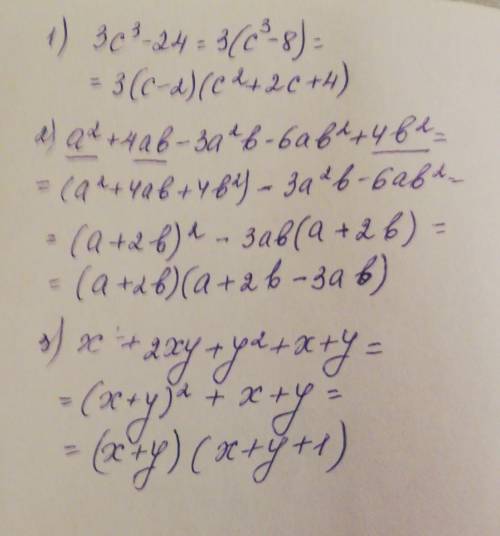 1) 3c³-24 = 3(c³-8) =
= 3(c-2)(c²+2c+4)
2) a²+4ab-3a²b-6ab²+4b² =
= (a²+4ab+4b²) - 3a²b-6ab² =
= (a+2b)² - 3ab(a+2b) =
= (a+2b)(a+2b-3ab)
3) x + 2xy+y²+x+y =
= (x+y)² + x+y =
= (x+y)(x+y+1)